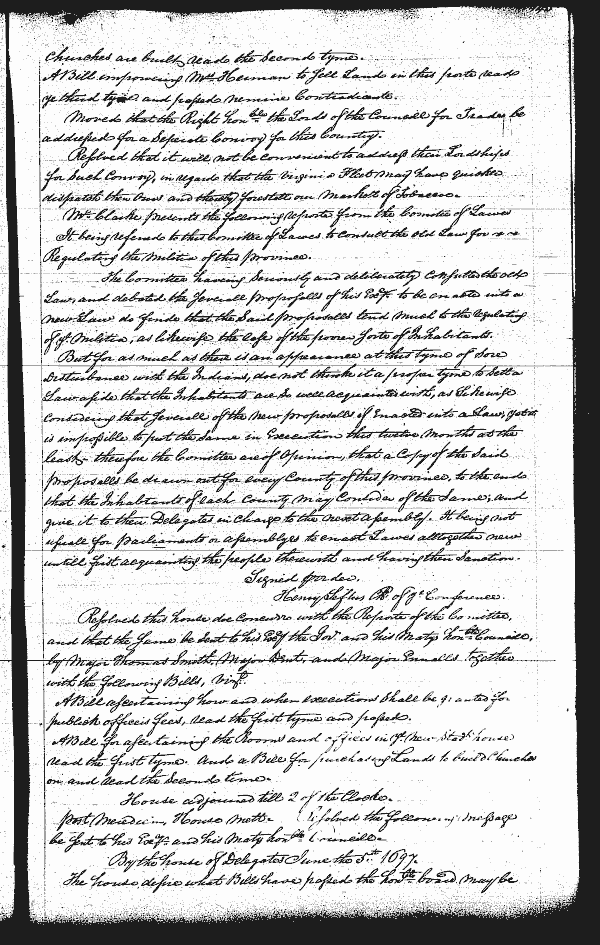 Churches are built, read the Second tyme.
A Bill impowering Mrs Herman to Sell Land in this porte read
ye third tyme and passed nemine Contradicente.
Moved that the Right Honble the Lords of the Councill for Trade be
addressed for a Seperate Convoy for this Country.
Resolved that it will not be convenient to address their Lordships
for Such Convoy, in regard that the Virginia Fleet may have quicker
dispatch then ours and thereby forestall our Markett of Tobacco.
Mr Clarke presents the following reporte from the Comitee of Lawes
It being referred to this Comitee of Lawes to Consult the old Law for
Regulating the Militia of this province.
The Comittee having Seriously and deliberately Consulted the old
Law, and debated the Severall proposalls of his Exy to be enacted into a
new Law do finde that the Said proposalls tend much to the regulating
of ye Militia, as likewise the ease of the poorer Sorte of Inhabitants.
But for as much as there is an appearance at this tyme of Some
Disturbance with the Indians, doe not thinke it a proper tyme to Sett a
Law aside that the Inhabitants are So well acquainted with, as Likewise
Considering that Severall of the new proposalls if Enacted into a Law, yet it
is impossible to put the Same in Execution this twelve Months at the
least, therefore the Comittee are of Opinion, that a Copy of the Said
proposalls be drawn out for every County of this province, to the end
that the Inhabitants of each County may Consider of the Same, and
give it to their Delegates in Charge to the next Assembly. It being not
usuall for Parliaments or Assemblyes to enact Lawes alltogether new
untill first acquainting the people therewith and having their Sanction.
Signed p order.
Henry Clk of ye Conference.
Resolved this house doe Concurr with the Reporte of the Comittee,
and that the Same be Sent to his Exy the Govr and his Matys honble Councill,
by Major Thomas Smith, Major Dent, and Major Ennalls together
with the following Bills, vizt.
A Bill ascertaining how and when executions Shall be granted for
publick officers fees, read the first tyme and passed.
A Bill for ascertaining the Rooms and offices in ye new Stadthouse
read the first tyme. And a Bill for purchasing Lands to build Churches
on and read the Second time.
House adjourned till 2 of the Clocke.
post Meredium, House mett. Resolved the following message
be Sent to his Exy and his Matys honble Councill.
By the house of Delegates June the 5th 1697.
The house desire what Bills have passed the honble board may be